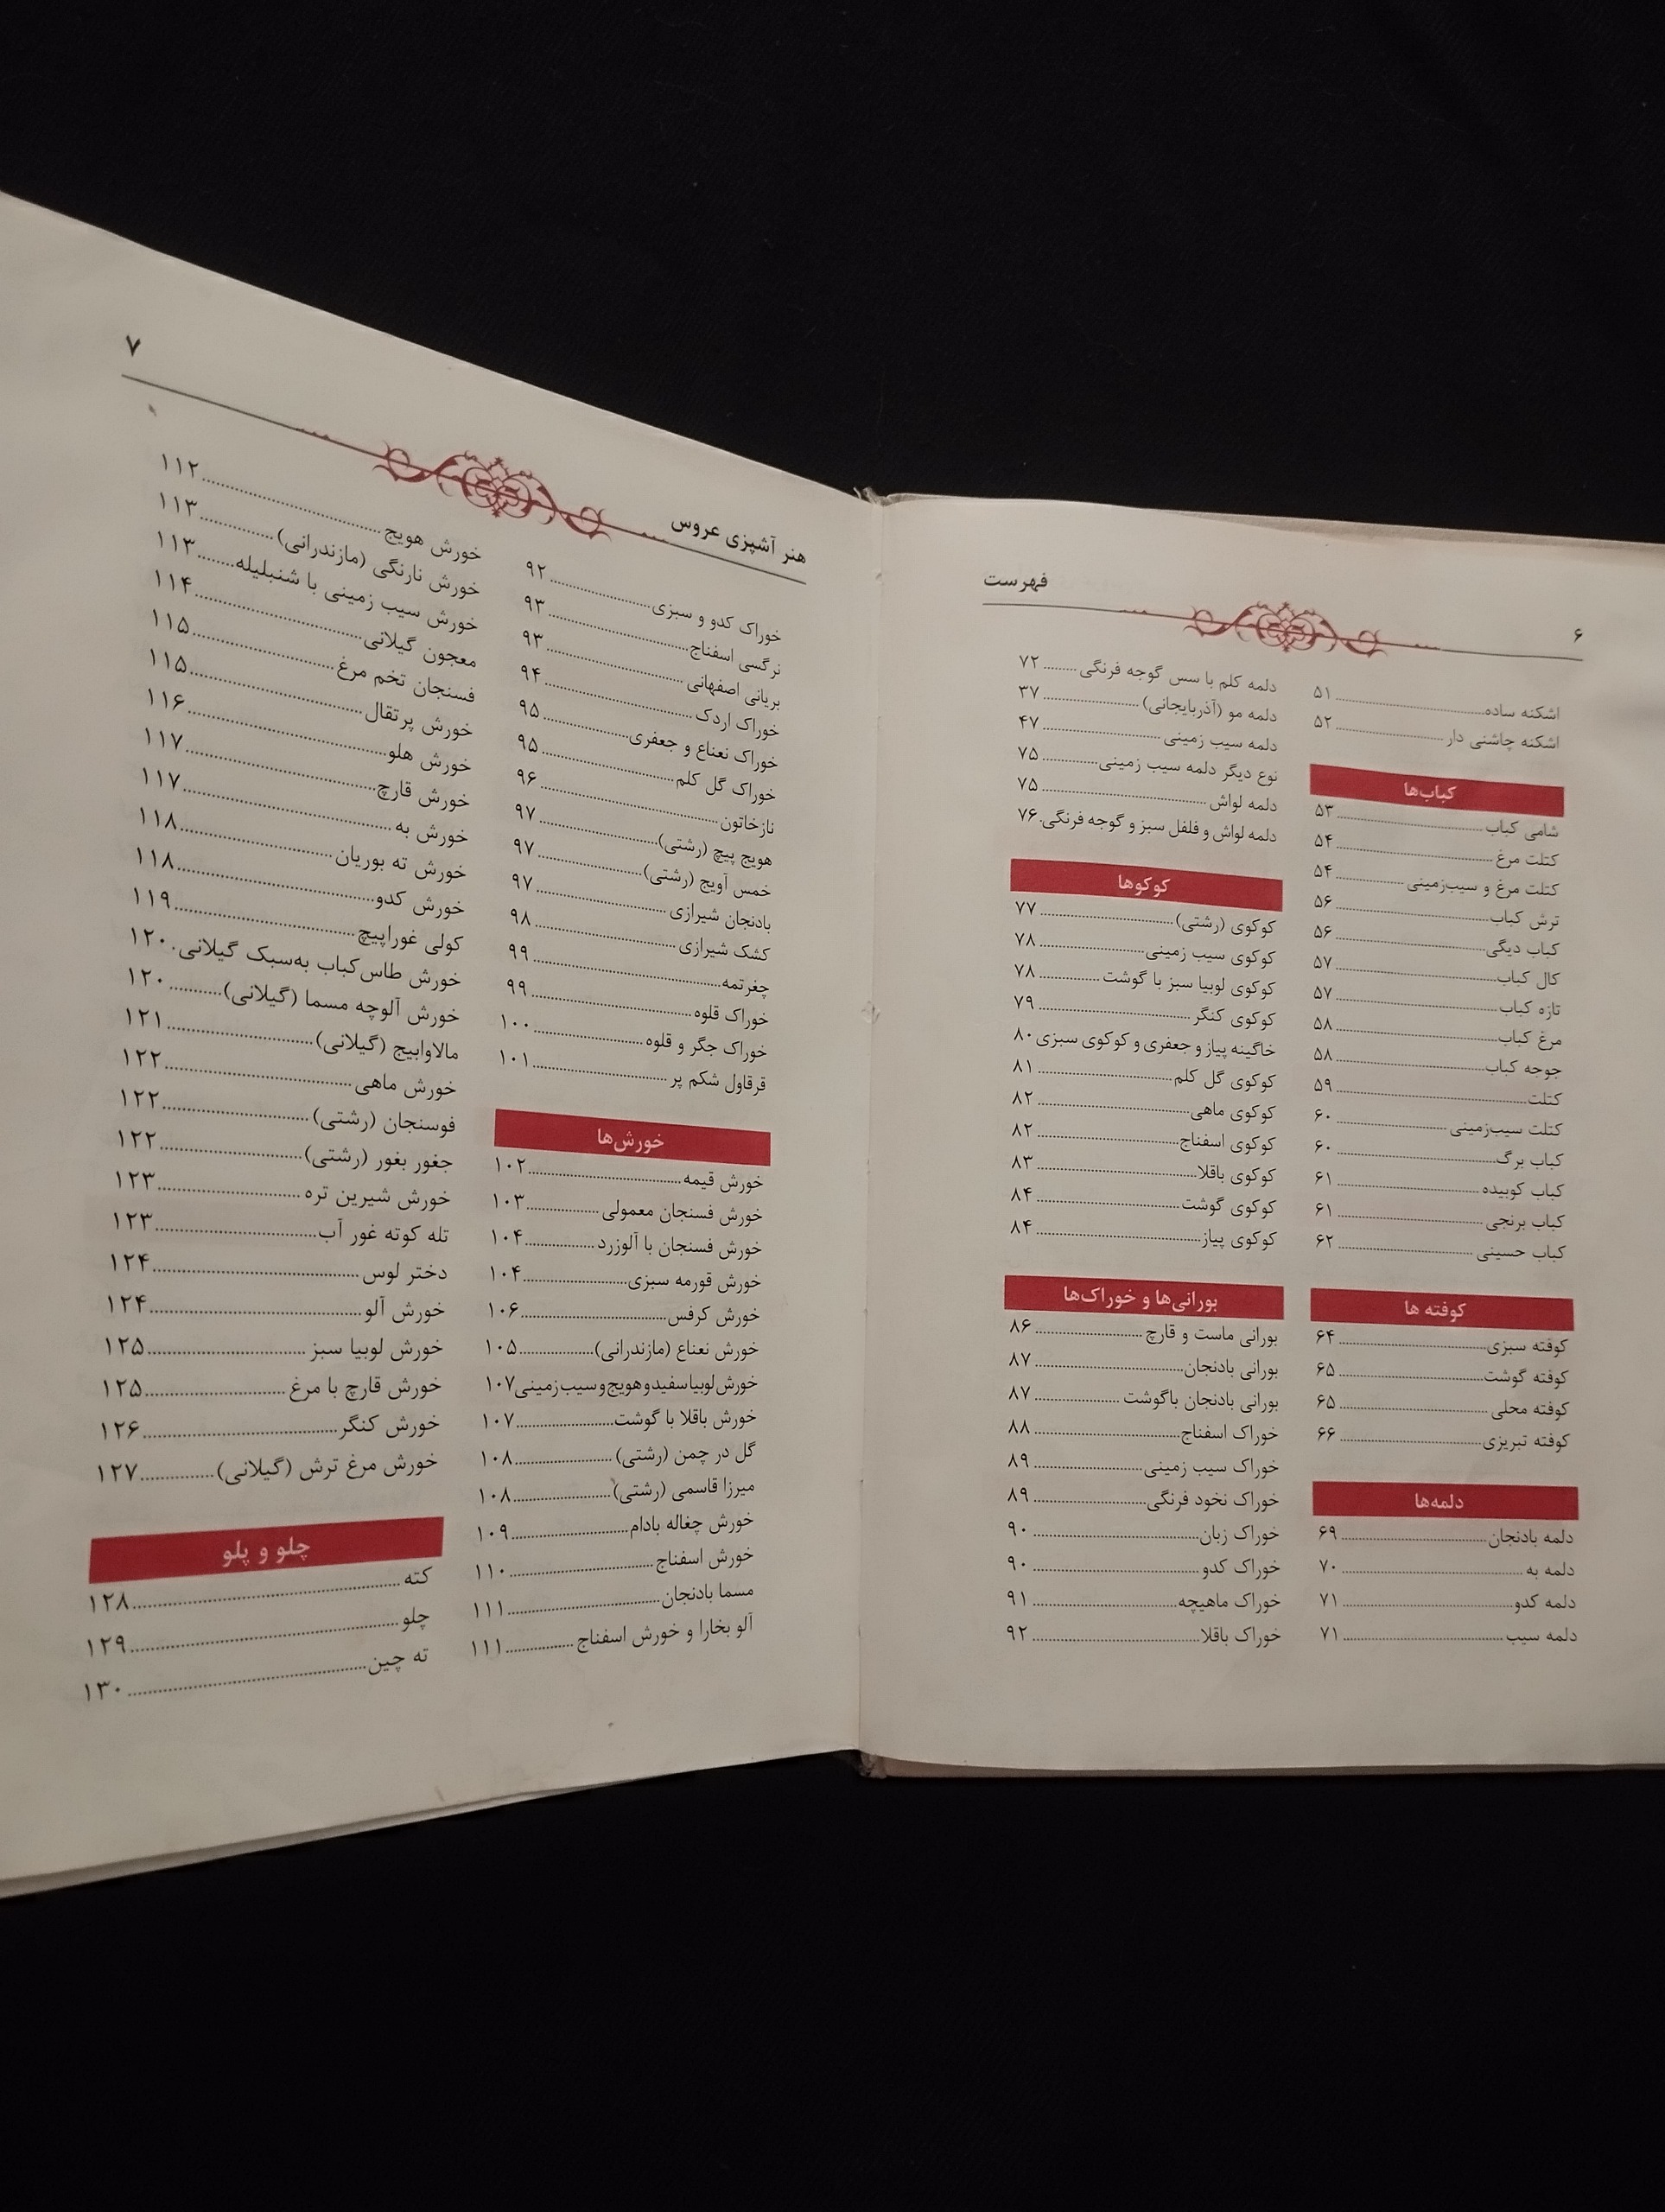 ۶
فهرست
اشکنه ساده ۵۱
اشکنه چاشنی دار ۵۲
کباب‌ها
شامی کباب ۵۳
کتلت مرغ ۵۴
کتلت مرغ و سیب‌زمینی ۵۴
ترش کباب ۵۶
کباب دیگی ۵۶
کال کباب ۵۷
تازه کباب ۵۷
مرغ کباب ۵۸
جوجه کباب ۵۸
کتلت ۵۹
کتلت سیب‌زمینی ۶۰
کباب برگ ۶۰
کباب کوبیده ۶۱
کباب برنجی ۶۱
کباب حسینی ۶۲
کوفته ها
کوفته سبزی ۶۴
کوفته گوشت ۶۵
کوفته محلی ۶۵
کوفته تبریزی ۶۶
دلمه‌ها
دلمه بادنجان ۶۹
دلمه به ۷۰
دلمه کدو ۷۱
دلمه سیب ۷۱
دلمه کلم با سس گوجه فرنگی ۷۲
دلمه مو (آذربایجانی) ۳۷
دلمه سیب زمینی ۴۷
نوع دیگر دلمه سیب زمینی ۷۵
دلمه لواش ۷۵
دلمه لواش و فلفل سبز و گوجه فرنگی ۷۶
کوکوها
کوکوی (رشتی) ۷۷
کوکوی سیب زمینی ۷۸
کوکوی لوبیا سبز با گوشت ۷۸
کوکوی کنگر ۷۹
خاگینه پیاز و جعفری و کوکوی سبزی ۸۰
کوکوی گل کلم ۸۱
کوکوی ماهی ۸۲
کوکوی اسفناج ۸۲
کوکوی باقلا ۸۳
کوکوی گوشت ۸۴
کوکوی پیاز ۸۴
بورانی‌ها و خوراک‌ها
بورانی ماست و قارچ ۸۶
بورانی بادنجان ۸۷
بورانی بادنجان باگوشت ۸۷
خوراک اسفناج ۸۸
خوراک سیب زمینی ۸۹
خوراک نخود فرنگی ۸۹
خوراک زبان ۹۰
خوراک کدو ۹۰
خوراک ماهیچه ۹۱
خوراک باقلا ۹۲
هنر آشپزی عروس
۷
خوراک کدو و سبزی ۹۲
نرگسی اسفناج ۹۳
بریانی اصفهانی ۹۳
خوراک اردک ۹۴
خوراک نعناع و جعفری ۹۵
خوراک گل کلم ۹۵
نازخاتون ۹۶
هویج پیچ (رشتی) ۹۷
خمس آویج (رشتی) ۹۷
بادنجان شیرازی ۹۷
کشک شیرازی ۹۸
چغرتمه ۹۹
خوراک قلوه ۹۹
خوراک جگر و قلوه ۱۰۰
قرقاول شکم پر ۱۰۱
خورش‌ها
خورش قیمه ۱۰۲
خورش فسنجان معمولی ۱۰۳
خورش فسنجان با آلوزرد ۱۰۴
خورش قورمه سبزی ۱۰۴
خورش کرفس ۱۰۶
خورش نعناع (مازندرانی) ۱۰۵
خورش لوبیا سفید و هویج و سیب زمینی ۱۰۷
خورش باقلا با گوشت ۱۰۷
گل در چمن (رشتی) ۱۰۸
میرزا قاسمی (رشتی) ۱۰۸
خورش چغاله بادام ۱۰۹
خورش اسفناج ۱۱۰
مسما بادنجان ۱۱۱
آلو بخارا و خورش اسفناج ۱۱۱
خورش هویج ۱۱۲
خورش نارنگی (مازندرانی) ۱۱۳
خورش سیب زمینی با شنبلیله ۱۱۳
معجون گیلانی ۱۱۴
فسنجان تخم مرغ ۱۱۵
خورش پرتقال ۱۱۵
خورش هلو ۱۱۶
خورش قارچ ۱۱۷
خورش به ۱۱۷
خورش ته بوریان ۱۱۸
خورش کدو ۱۱۸
کولی غوراپیچ ۱۱۹
خورش طاس‌کباب به‌سبک گیلانی ۱۲۰
خورش آلوچه مسما (گیلانی) ۱۲۰
مالاوابیج (گیلانی) ۱۲۱
خورش ماهی ۱۲۲
فوسنجان (رشتی) ۱۲۲
جغور بغور (رشتی) ۱۲۲
خورش شیرین تره ۱۲۳
تله کوته غور آب ۱۲۳
دختر لوس ۱۲۴
خورش آلو ۱۲۴
خورش لوبیا سبز ۱۲۵
خورش قارچ با مرغ ۱۲۵
خورش کنگر ۱۲۶
خورش مرغ ترش (گیلانی) ۱۲۷
چلو و پلو
کته ۱۲۸
چلو ۱۲۹
ته چین ۱۳۰